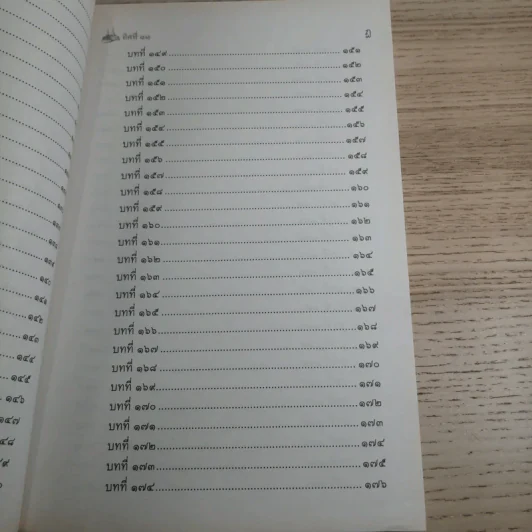 ๑๔๔
๑๔๕
๑๔๖
๑๔๗
บทที่ ๑๔๙ ๑๕๑
บทที่ ๑๕๐ ๑๕๒
บทที่ ๑๕๑ ๑๕๓
บทที่ ๑๕๒ ๑๕๔
บทที่ ๑๕๓ ๑๕๕
บทที่ ๑๕๔ ๑๕๖
บทที่ ๑๕๕ ๑๕๗
บทที่ ๑๕๖ ๑๕๘
บทที่ ๑๕๗ ๑๕๙
บทที่ ๑๕๘ ๑๖๐
บทที่ ๑๕๙ ๑๖๑
บทที่ ๑๖๐ ๑๖๒
บทที่ ๑๖๑ ๑๖๓
บทที่ ๑๖๒ ๑๖๔
บทที่ ๑๖๓ ๑๖๕
บทที่ ๑๖๔ ๑๖๖
บทที่ ๑๖๕ ๑๖๗
บทที่ ๑๖๖ ๑๖๘
บทที่ ๑๖๗ ๑๖๙
บทที่ ๑๖๘ ๑๗๐
บทที่ ๑๖๙ ๑๗๑
บทที่ ๑๗๐ ๑๗๒
บทที่ ๑๗๑ ๑๗๓
บทที่ ๑๗๒ ๑๗๔
บทที่ ๑๗๓ ๑๗๕
บทที่ ๑๗๔ ๑๗๖